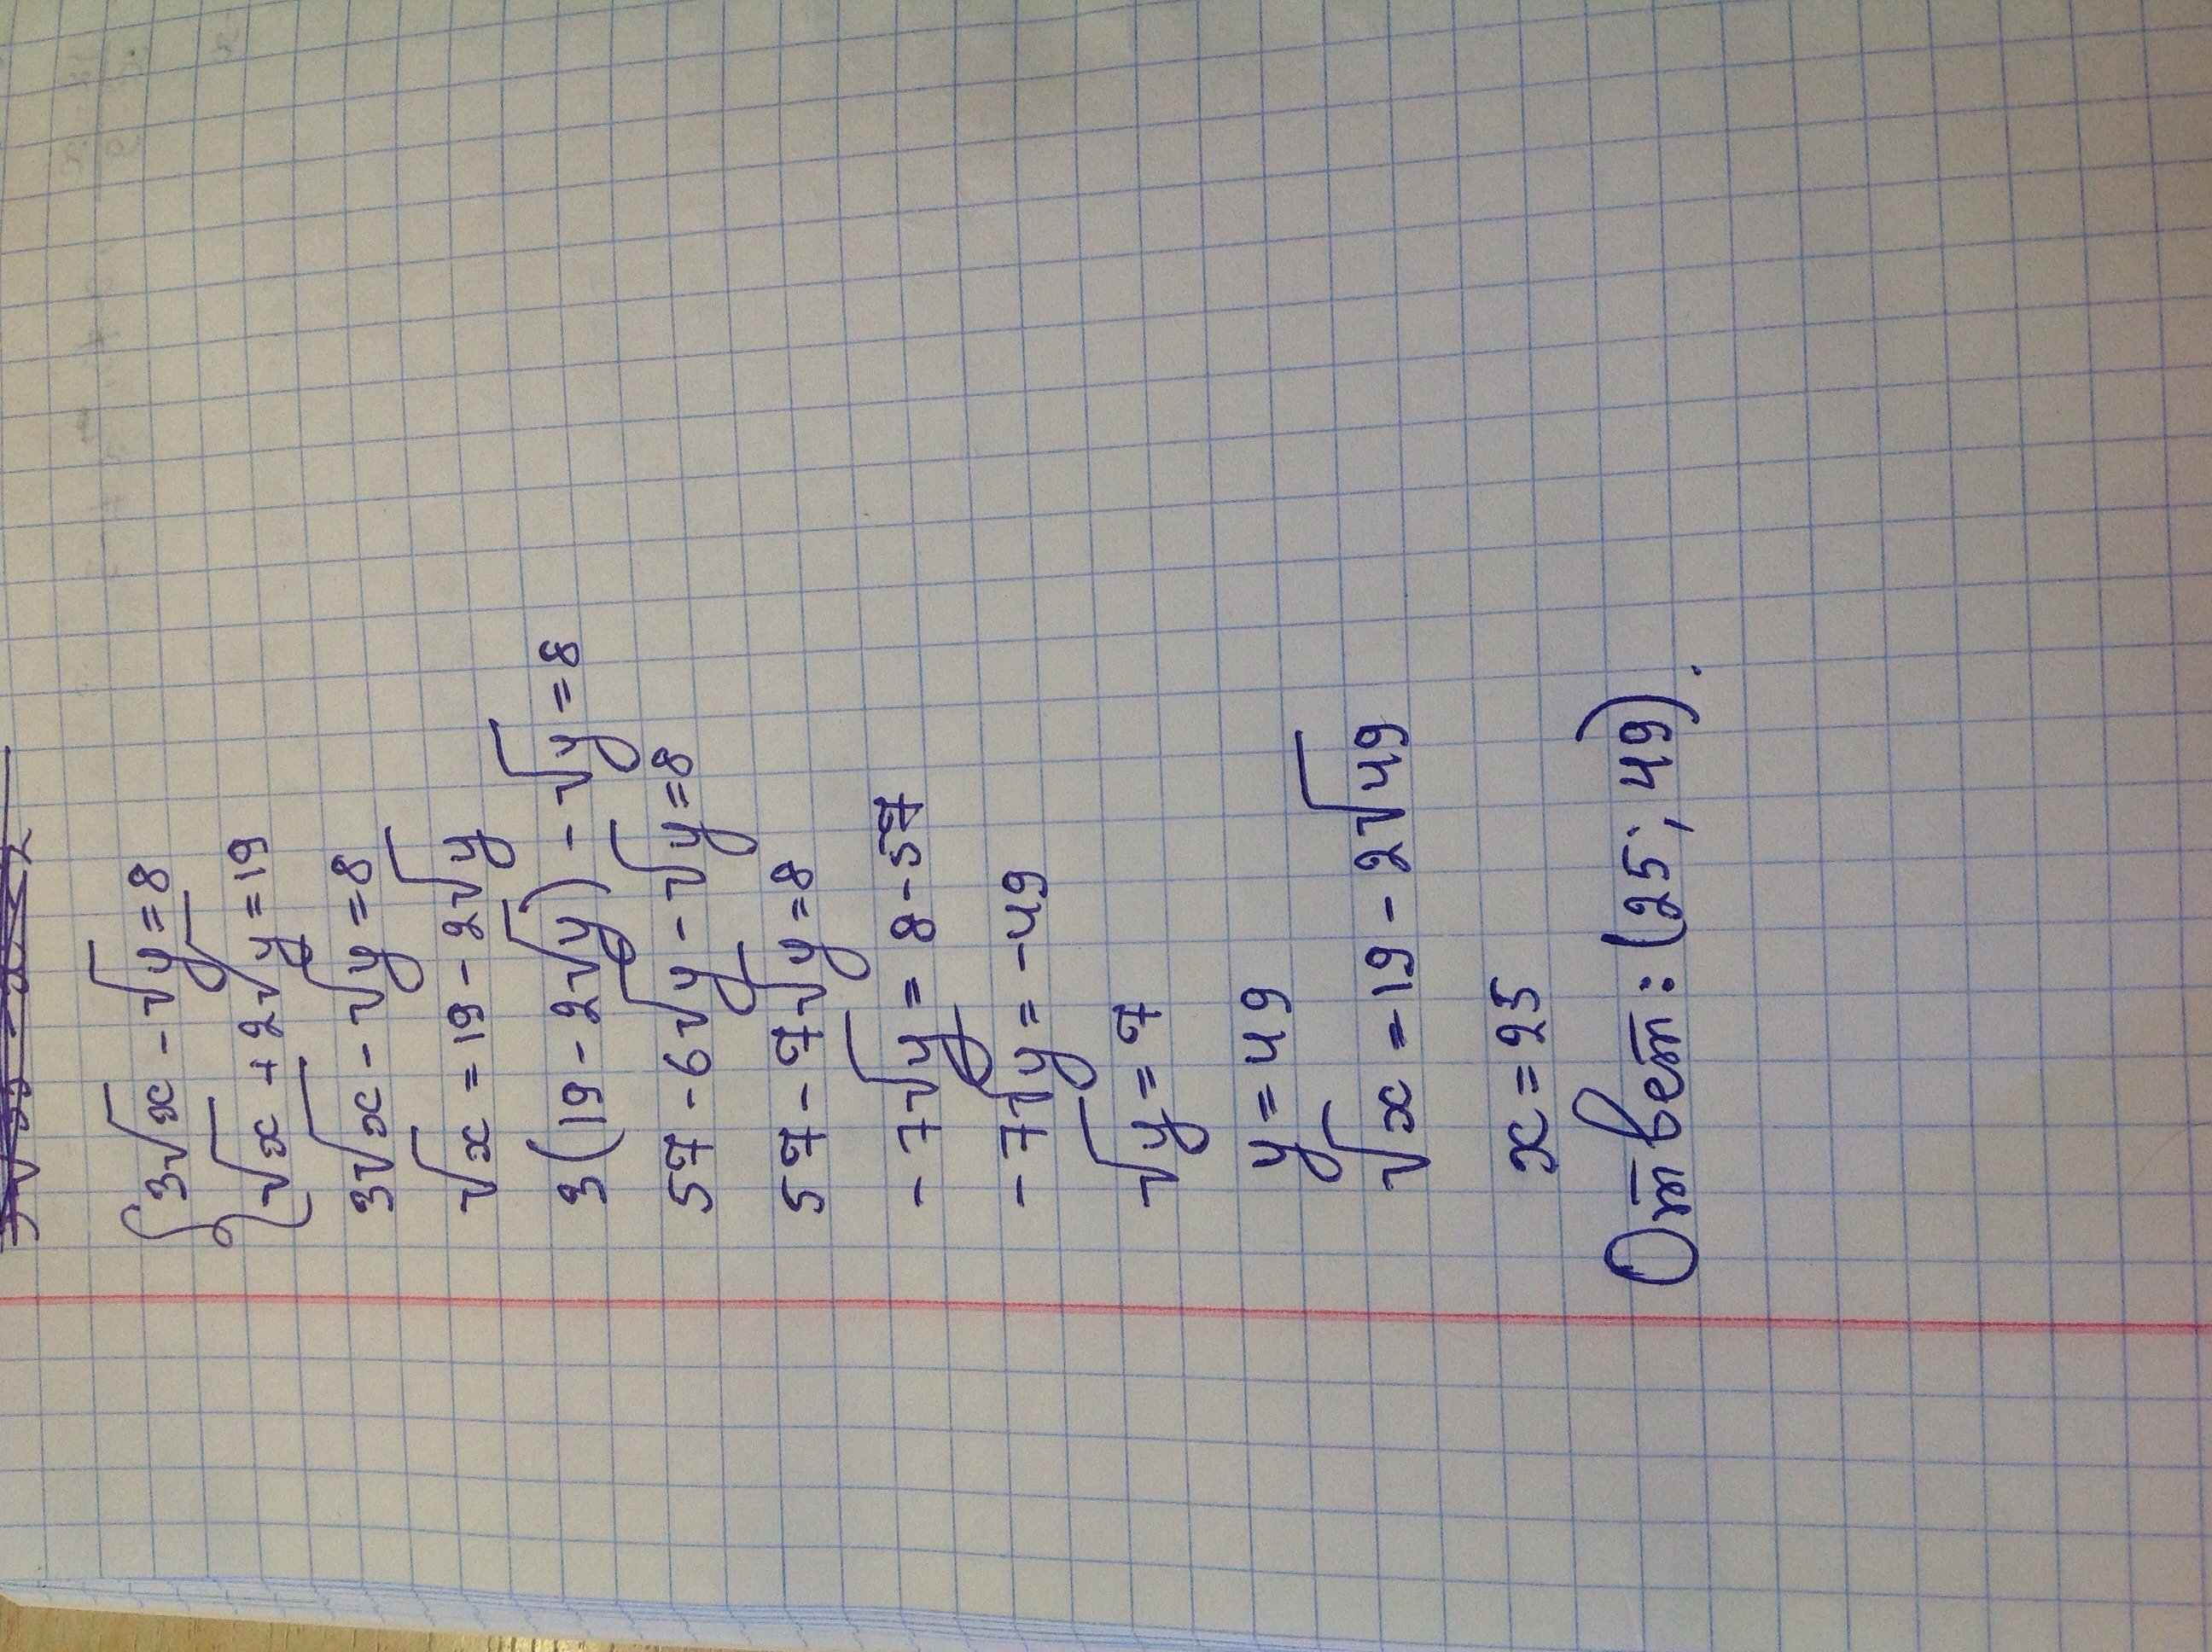 3√x - √y = 8
√x + 2√y = 19
3√x - √y = 8
√x = 19 - 2√y
3(19 - 2√y) - √y = 8
57 - 6√y - √y = 8
57 - 7√y = 8
- 7√y = 8 - 57
- 7√y = - 49
√y = 7
y = 49
√x = 19 - 2√49
x = 25
Ответ: (25; 49).